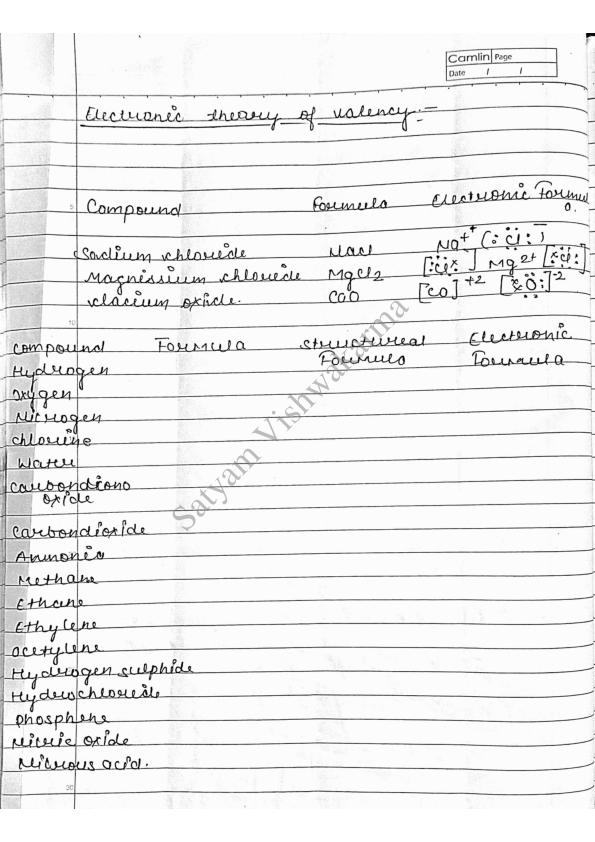 Camlin Page
Date / /
Electronic theory of valency :=
Compound Formula Electronic Formula
Sodium chloride Nacl Na++ (:Cl:)‾
Magnissium chloride MgCl2 [:Cl×] Mg2+ [×Cl:]
Clacium oxide. CaO [CO]+2 [×O:]-2
10
Compound Formula structureal Electronic
Hydrogen Formula Formula
Oxygen
Nitrogen
chlorine
Water
Carbondiono
oxide
Carbondioxide
Ammonia
Methane
Ethane
Ethylene
acetylene
Hydrogen sulphide
Hydrochloride
phosphene
Nitric oxide
Nitrous acid.
30
Satyam Vishwakarma